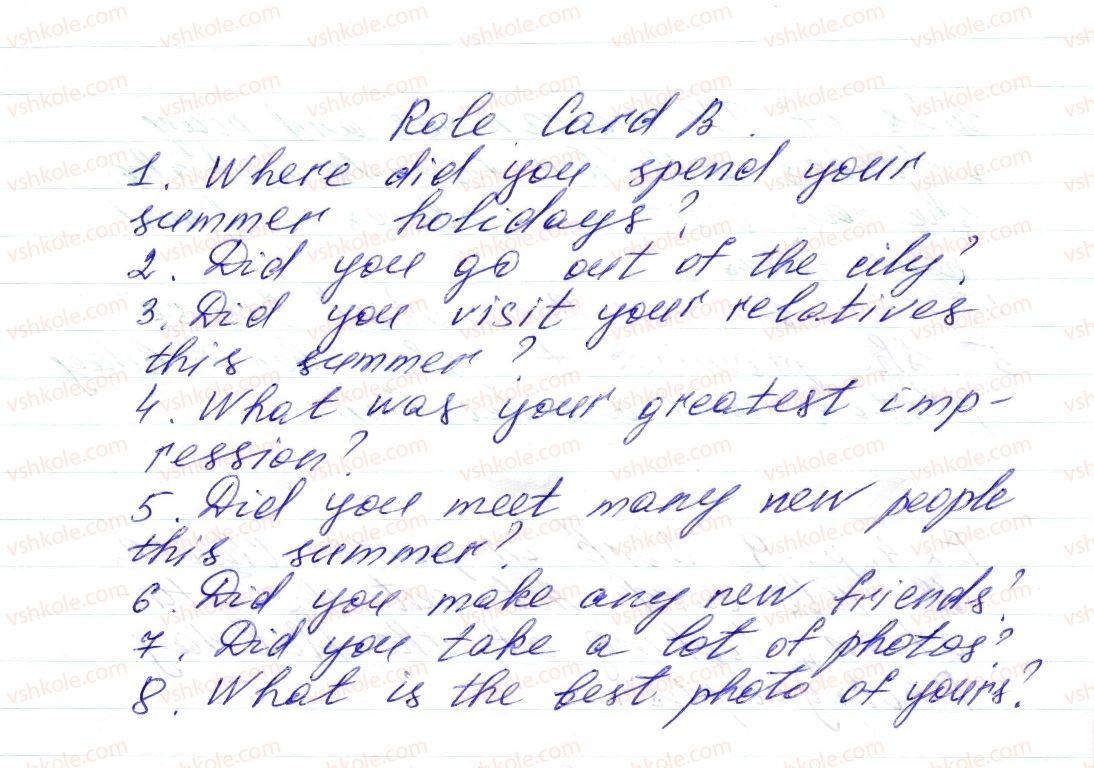 Role Card B.
1. Where did you spend your
summer holidays?
2. Did you go out of the city?
3. Did you visit your relatives
this summer?
4. What was your greatest imp-
ression?
5. Did you meet many new people
this summer?
6. Did you make any new friends?
7. Did you take a lot of photos?
8. What is the best photo of yours?